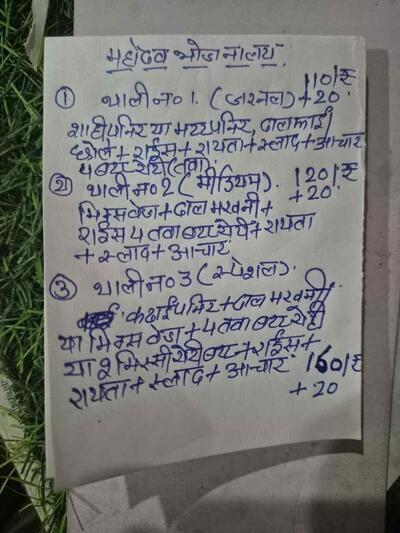 महादेव भोजनालय
110/₹
① थाली न० 1. (जरनल) + 20
शाहीपनिर या मटरपनिर, दालफ्राई
छोले + राईस + रायता + स्लाद + आचार
4 बटर रोटी (तवा).
② थाली न० 2 (मीडियम). 120/₹
+ 20.
मिक्सवेज + दाल मखनी +
राईस 4 तवा बटर रोटी + रायता
+ स्लाद + आचार
③ थाली न० 3 (स्पेशल).
कढाई पनिर + दाल मखनी
या मिक्स वेज + 4 तवा बटर रोटी
या 2 मिस्सी रोटी बटर + राईस +
रायता + स्लाद + आचार 160/₹
+ 20